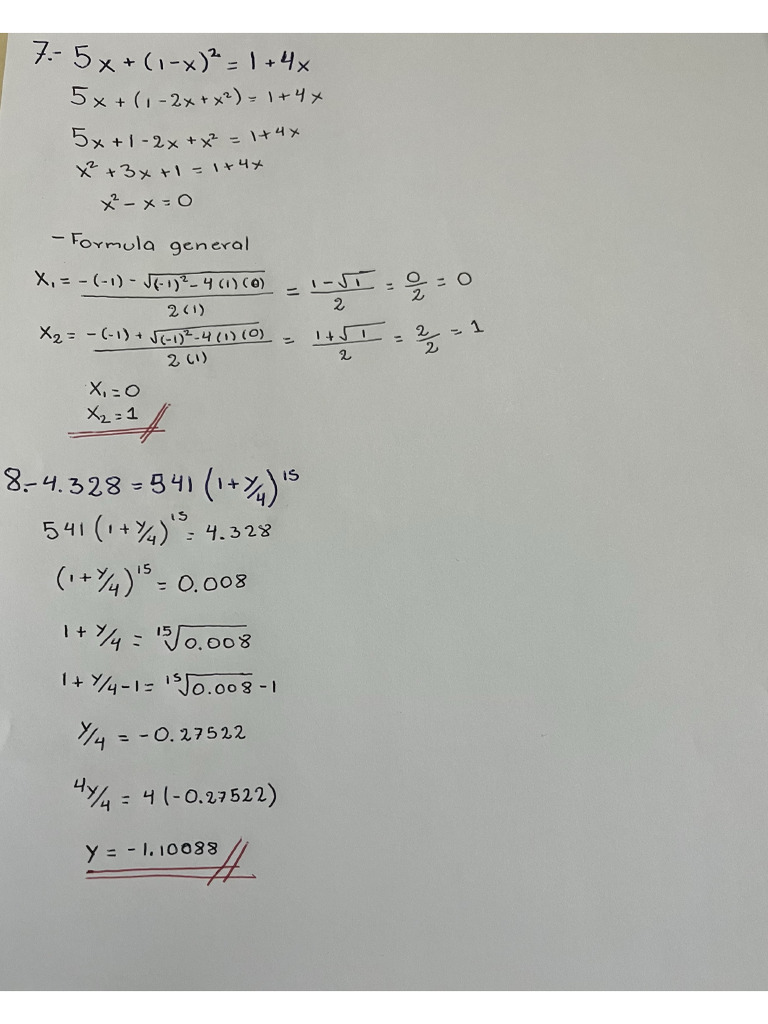 7.- 5x + (1-x)² = 1 + 4x
5x + (1 - 2x + x²) = 1 + 4x
5x + 1 - 2x + x² = 1 + 4x
x² + 3x + 1 = 1 + 4x
x² - x = 0
- Formula general
X₁ = -(-1) - √(-1)² - 4(1)(0) / 2(1) = 1 - √1 / 2 = 0/2 = 0
X₂ = -(-1) + √(-1)² - 4(1)(0) / 2(1) = 1 + √1 / 2 = 2/2 = 1
X₁ = 0
X₂ = 1
8.- 4.328 = 541 (1 + y/4)¹⁵
541 (1 + y/4)¹⁵ = 4.328
(1 + y/4)¹⁵ = 0.008
1 + y/4 = ¹⁵√0.008
1 + y/4 - 1 = ¹⁵√0.008 - 1
y/4 = -0.27522
4y/4 = 4(-0.27522)
y = -1.10088